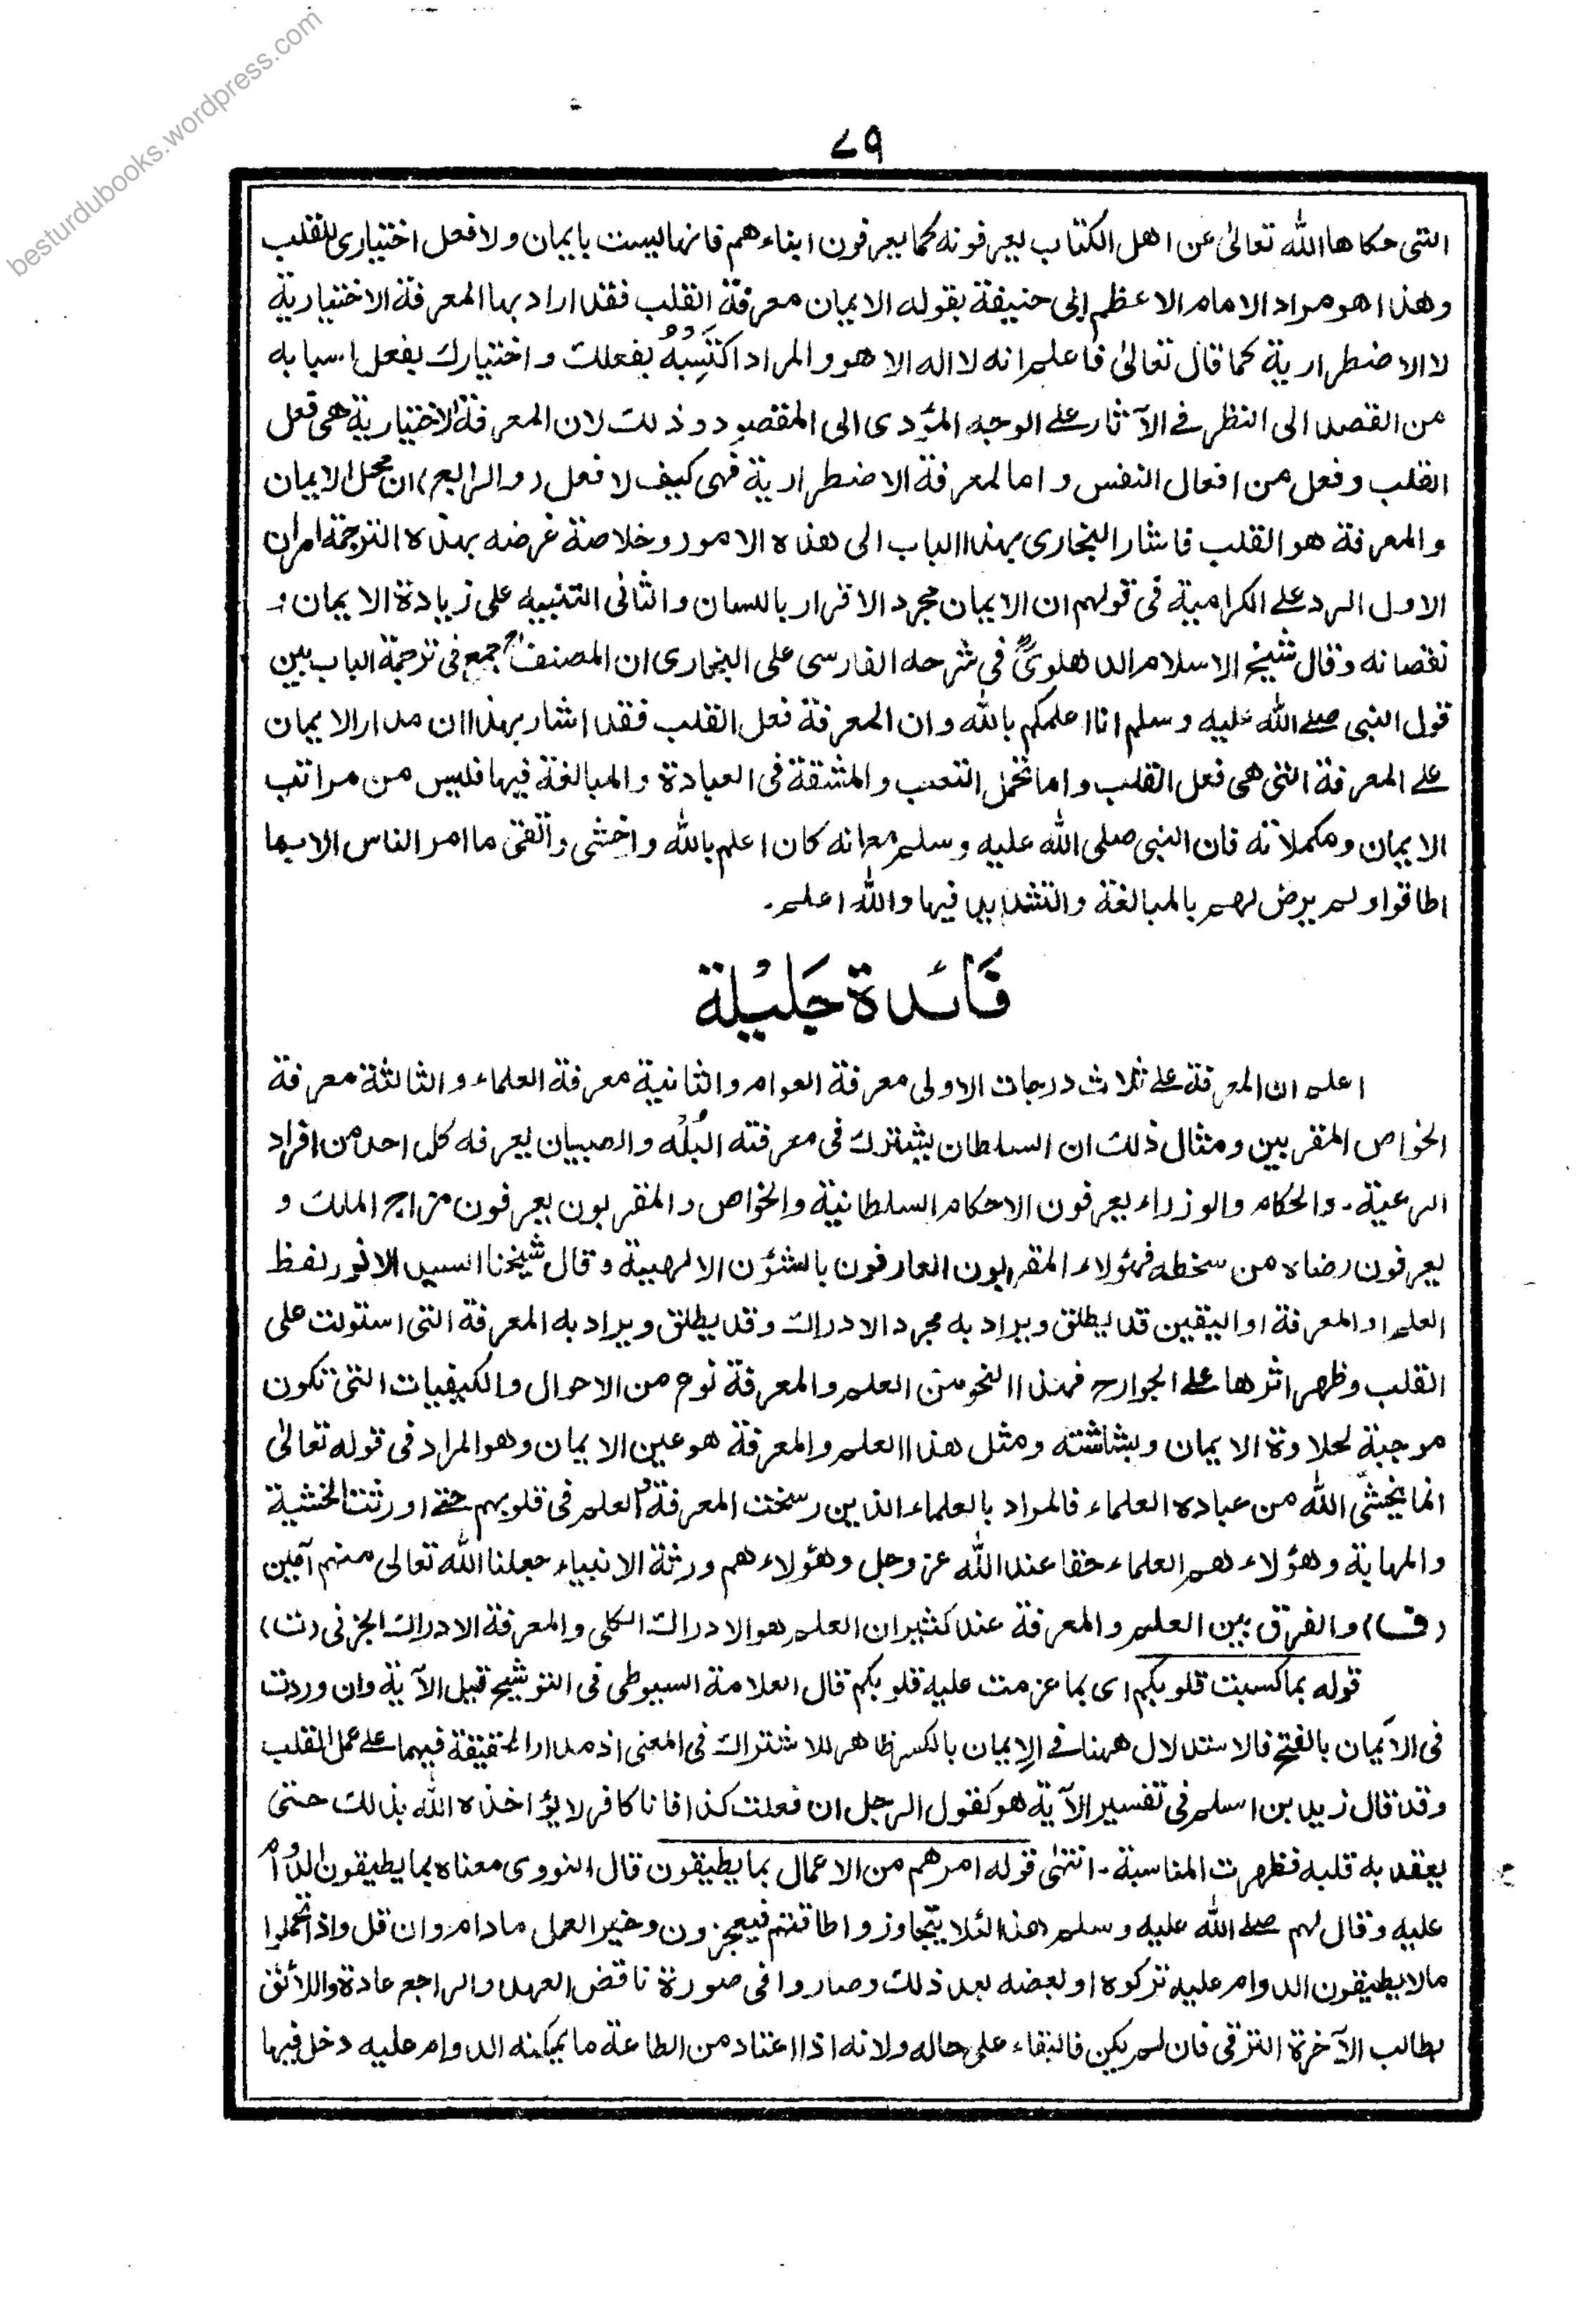 besturdubooks.wordpress.com
۷۹
التی حکاها الله تعالیٰ عن اهل الکتاب یعرفونه کما یعرفون ابناءهم فانها لیست بایمان ولا فعل اختیاری للقلب
وهذا هو مراد الامام الاعظم ابی حنیفة بقوله الایمان معرفة القلب فقد اراد بها المعرفة الاختیاریة
لا الاضطراریة کما قال تعالیٰ فاعلم انه لا اله الا هو والمراد اکتَسِبْهُ بفعلك واختیارك بفعل اسبابه
من القصد الی النظر فی الآثار علی الوجه المؤدی الی المقصود وذلك لان المعرفة الاختیاریة هی فعل
القلب وفعل من افعال النفس واما المعرفة الاضطراریة فهی کیف لا فعل (والرابع) ان محل الایمان
والمعرفة هو القلب فاشار البخاری بهذا الباب الی هذه الامور وخلاصة غرضه بهذه الترجمة امران
الاول الرد علی الکرامیة فی قولهم ان الایمان مجرد الاقرار باللسان والثانی التنبیه علی زیادة الایمان و
نقصانه وقال شیخ الاسلام الدهلویؒ فی شرحه الفارسی علی البخاری ان المصنفؒ جمع فی ترجمة الباب بین
قول النبی صلے الله علیه وسلم انا اعلمکم بالله وان المعرفة فعل القلب فقد اشار بهذا ان مدار الایمان
علی المعرفة التی هی فعل القلب واما تحمل التعب والمشقة فی العبادة والمبالغة فیها فلیس من مراتب
الایمان ومکملاته فان النبی صلی الله علیه وسلم مع انه کان اعلم بالله واخشی واتقی ما امر الناس الا بما
اطاقوا ولم یرض لهم بالمبالغة والتشدید فیها والله اعلم۔
فَائدة جَلیْلة
اعلم ان المعرفة علی ثلاث درجات الاولی معرفة العوام والثانیة معرفة العلماء والثالثة معرفة
الخواص المقربین ومثال ذلك ان السلطان یشترك فی معرفته البُلْه والصبیان یعرفه کل احد من افراد
الرعیة۔ والحکام والوزراء یعرفون الاحکام السلطانیة والخواص والمقربون یعرفون مزاج الملك و
یعرفون رضاه من سخطه فهؤلاء المقربون العارفون بالشؤن الالهیة وقال شیخنا السید الانور لفظ
العلم او المعرفة او الیقین قد یطلق ویراد به مجرد الادراك وقد یطلق ویراد به المعرفة التی استولت علی
القلب وظهر اثرها علی الجوارح فهذا النحو من العلم والمعرفة نوع من الاحوال والکیفیات التی تکون
موجبة لحلاوة الایمان وبشاشته ومثل هذا العلم والمعرفة هو عین الایمان وهو المراد فی قوله تعالیٰ
انما یخشی الله من عباده العلماء فالمراد بالعلماء الذین رسخت المعرفة والعلم فی قلوبهم حتے اورثت الخشیة
والمهابة وهؤلاء هم العلماء حقا عند الله عز وجل وهؤلاء هم ورثة الانبیاء جعلنا الله تعالی منهم آمین
(ف) والفرق بین العلم والمعرفة عند کثیر ان العلم هو الادراك الکلی والمعرفة الادراك الجزئی (ت)
قوله بما کسبت قلوبکم ای بما عزمت علیه قلوبکم قال العلامة السیوطی فی التوشیح قبل الآیة وان وردت
فی الاَیمان بالفتح فالاستدلال ههنا فی الاِیمان بالکسر ظاهر للاشتراك فی المعنی اذ مدار الحقیقة فیهما علی عمل القلب
وقد قال زید بن اسلم فی تفسیر الآیة هو کقول الرجل ان فعلت کذا فانا کافر لا یؤاخذه الله بذلك حتی
یعقد به قلبه فظهرت المناسبة۔ انتهیٰ قوله امرهم من الاعمال بما یطیقون قال النووی معناه بما یطیقون الدوام
علیه وقال لهم صلے الله علیه وسلم هذا لئلا یتجاوزوا طاقتهم فیعجزون وخیر العمل ما دام وان قل واذا تحملوا
مالا یطیقون الدوام علیه ترکوه او بعضه بعد ذلك وصاروا فی صورة ناقض العهد والراجع عادة واللائق
بطالب الآخرة الترقی فان لم یکن فالبقاء علی حاله ولانه اذا اعتاد من الطاعة ما یمکنه الدوام علیه دخل فیها